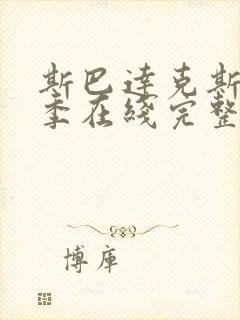 斯巴达克斯
季在线完整
博库